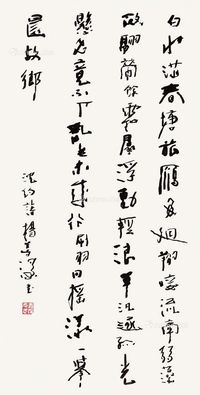 白水滿春塘旅雁每迴翔唼流牽弱藻
斂翮帶餘霜羣浮動輕浪單汎逐孤光
懸飛竟不下亂起未成行刷羽同搖漾一舉
還故鄉
沈約詩楊善深書